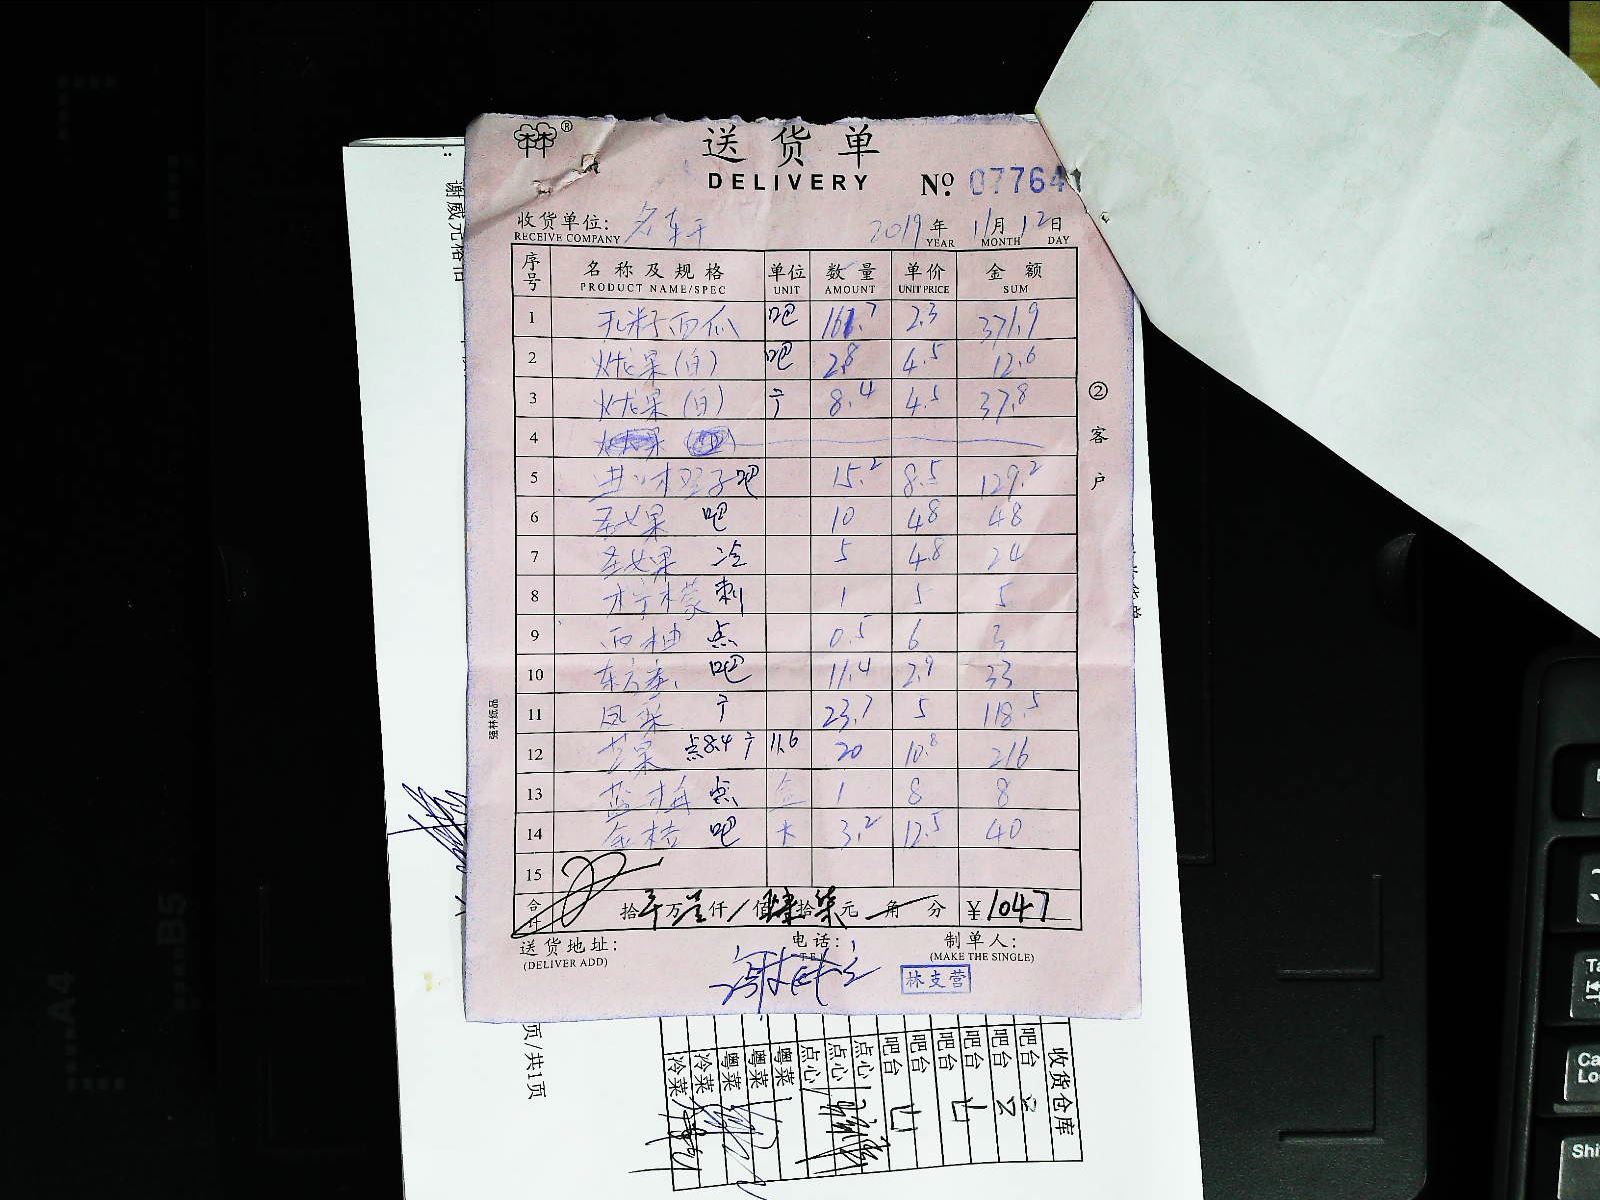 送货单
DELIVERY No. 07764
收货单位: 2019年 11月 12日
RECEIVE COMPANY YEAR MONTH DAY
序号 名称及规格 单位 数量 单价 金额
PRODUCT NAME/SPEC UNIT AMOUNT UNIT PRICE SUM
1 无籽西瓜 吧 161.7 2.3 371.9
2 火龙果(白) 吧 2.8 4.5 12.6
3 火龙果(白) 8.4 4.5 37.8
4
5 吧 15.2 8.5 129.2
6 圣女果 吧 10 4.8 48
7 圣女果 冷 5 4.8 24
8 柠檬 刺 1 5 5
9 西柚 点 0.5 6 3
10 吧 11.4 2.9 33
11 23.7 5 118.5
12 芒果 点8.4 11.6 20 10.8 216
13 蓝梅 点 盒 1 8 8
14 金桔 吧 3.2 12.5 40
15
合计 拾 万 壹仟 / 佰 肆拾 柒元 角 分 ¥1047
送货地址: 电话: 制单人:
(DELIVER ADD) TEL (MAKE THE SINGLE)
林支营
②客户
强林纸品
谢威元
页/共1页
收货仓库
吧台
吧台
吧台
吧台
吧台
吧台
点心
点心
点心
粤菜
粤菜
粤菜
冷菜
冷菜
A4
B5